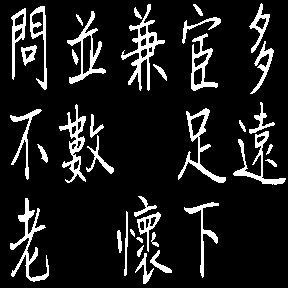 問並兼宦多
不數 足遠
老 懷下